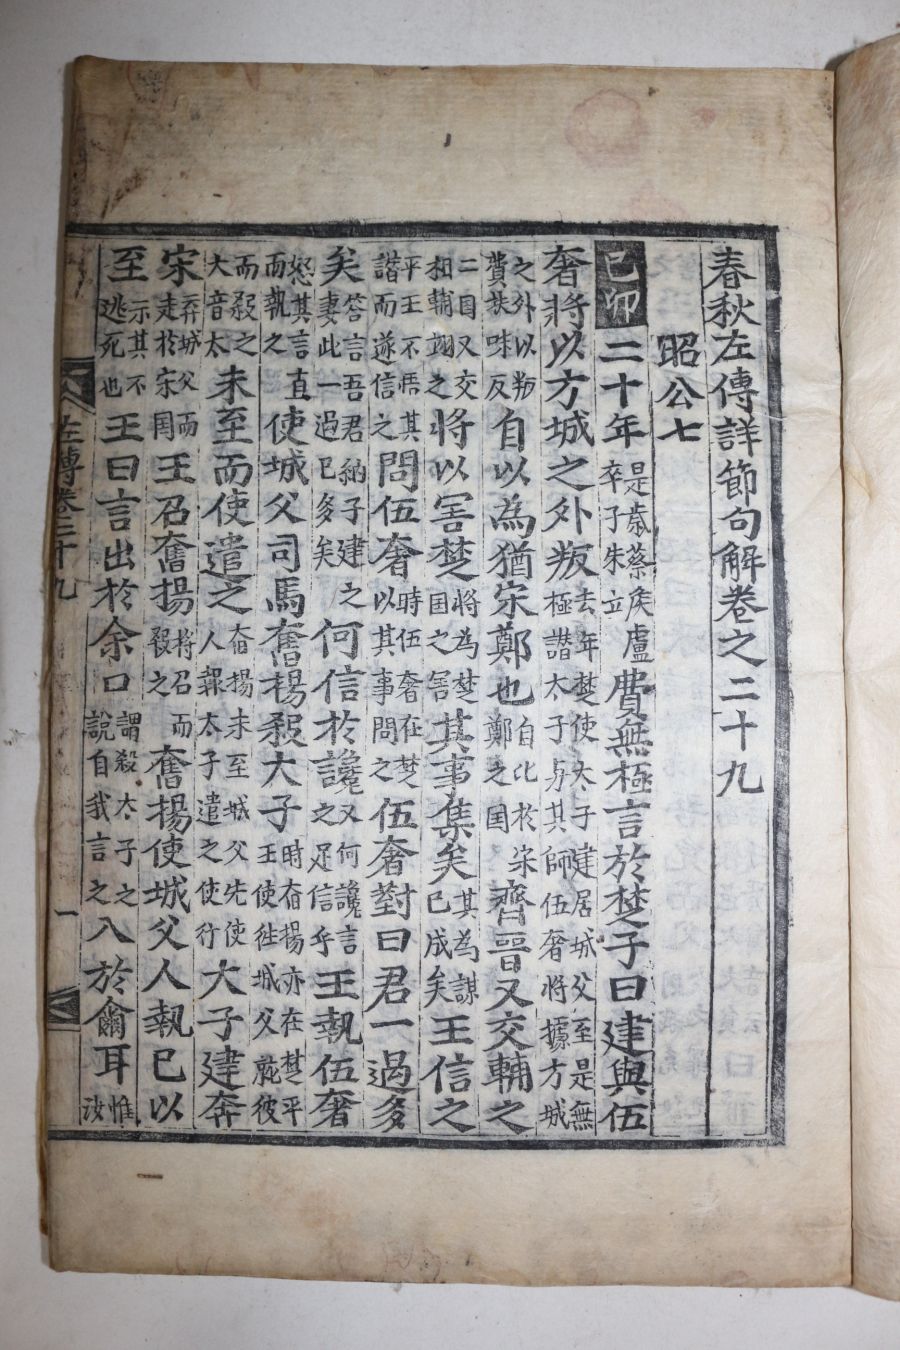 春秋左傳詳節句解卷之二十九
昭公七
己卯二十年是歲蔡侯盧卒子朱立費無極言於楚子曰建與伍
奢將以方城之外叛去年楚使太子建居城父至是無極譖太子与其師伍奢將據方城
之外以叛費扶味反自以為猶宋鄭也自比於宋鄭之国齊晋又交輔之
二国又交相輔翊之將以害楚將為楚国之害其事集矣其為謀已成矣王信之
平王不悟其譖而遂信之問伍奢時伍奢在楚以其事問之伍奢對曰君一過多
矣答言吾君納子建之妻此一過已多矣何信於讒又何讒言之足信乎王執伍奢
怒其言直而執之使城父司馬奮揚殺大子時奮揚亦在楚平王使往城父就彼
而殺之大音太未至而使遣之奮揚未至城父先使人報太子遣之使行大子建奔
宋弃城父而走於宋国王召奮揚將召而殺之奮揚使城父人執己以
至示其不逃死也王曰言出於余口謂殺太子之說自我言之入於爾耳惟汝
左傳卷二十九 一